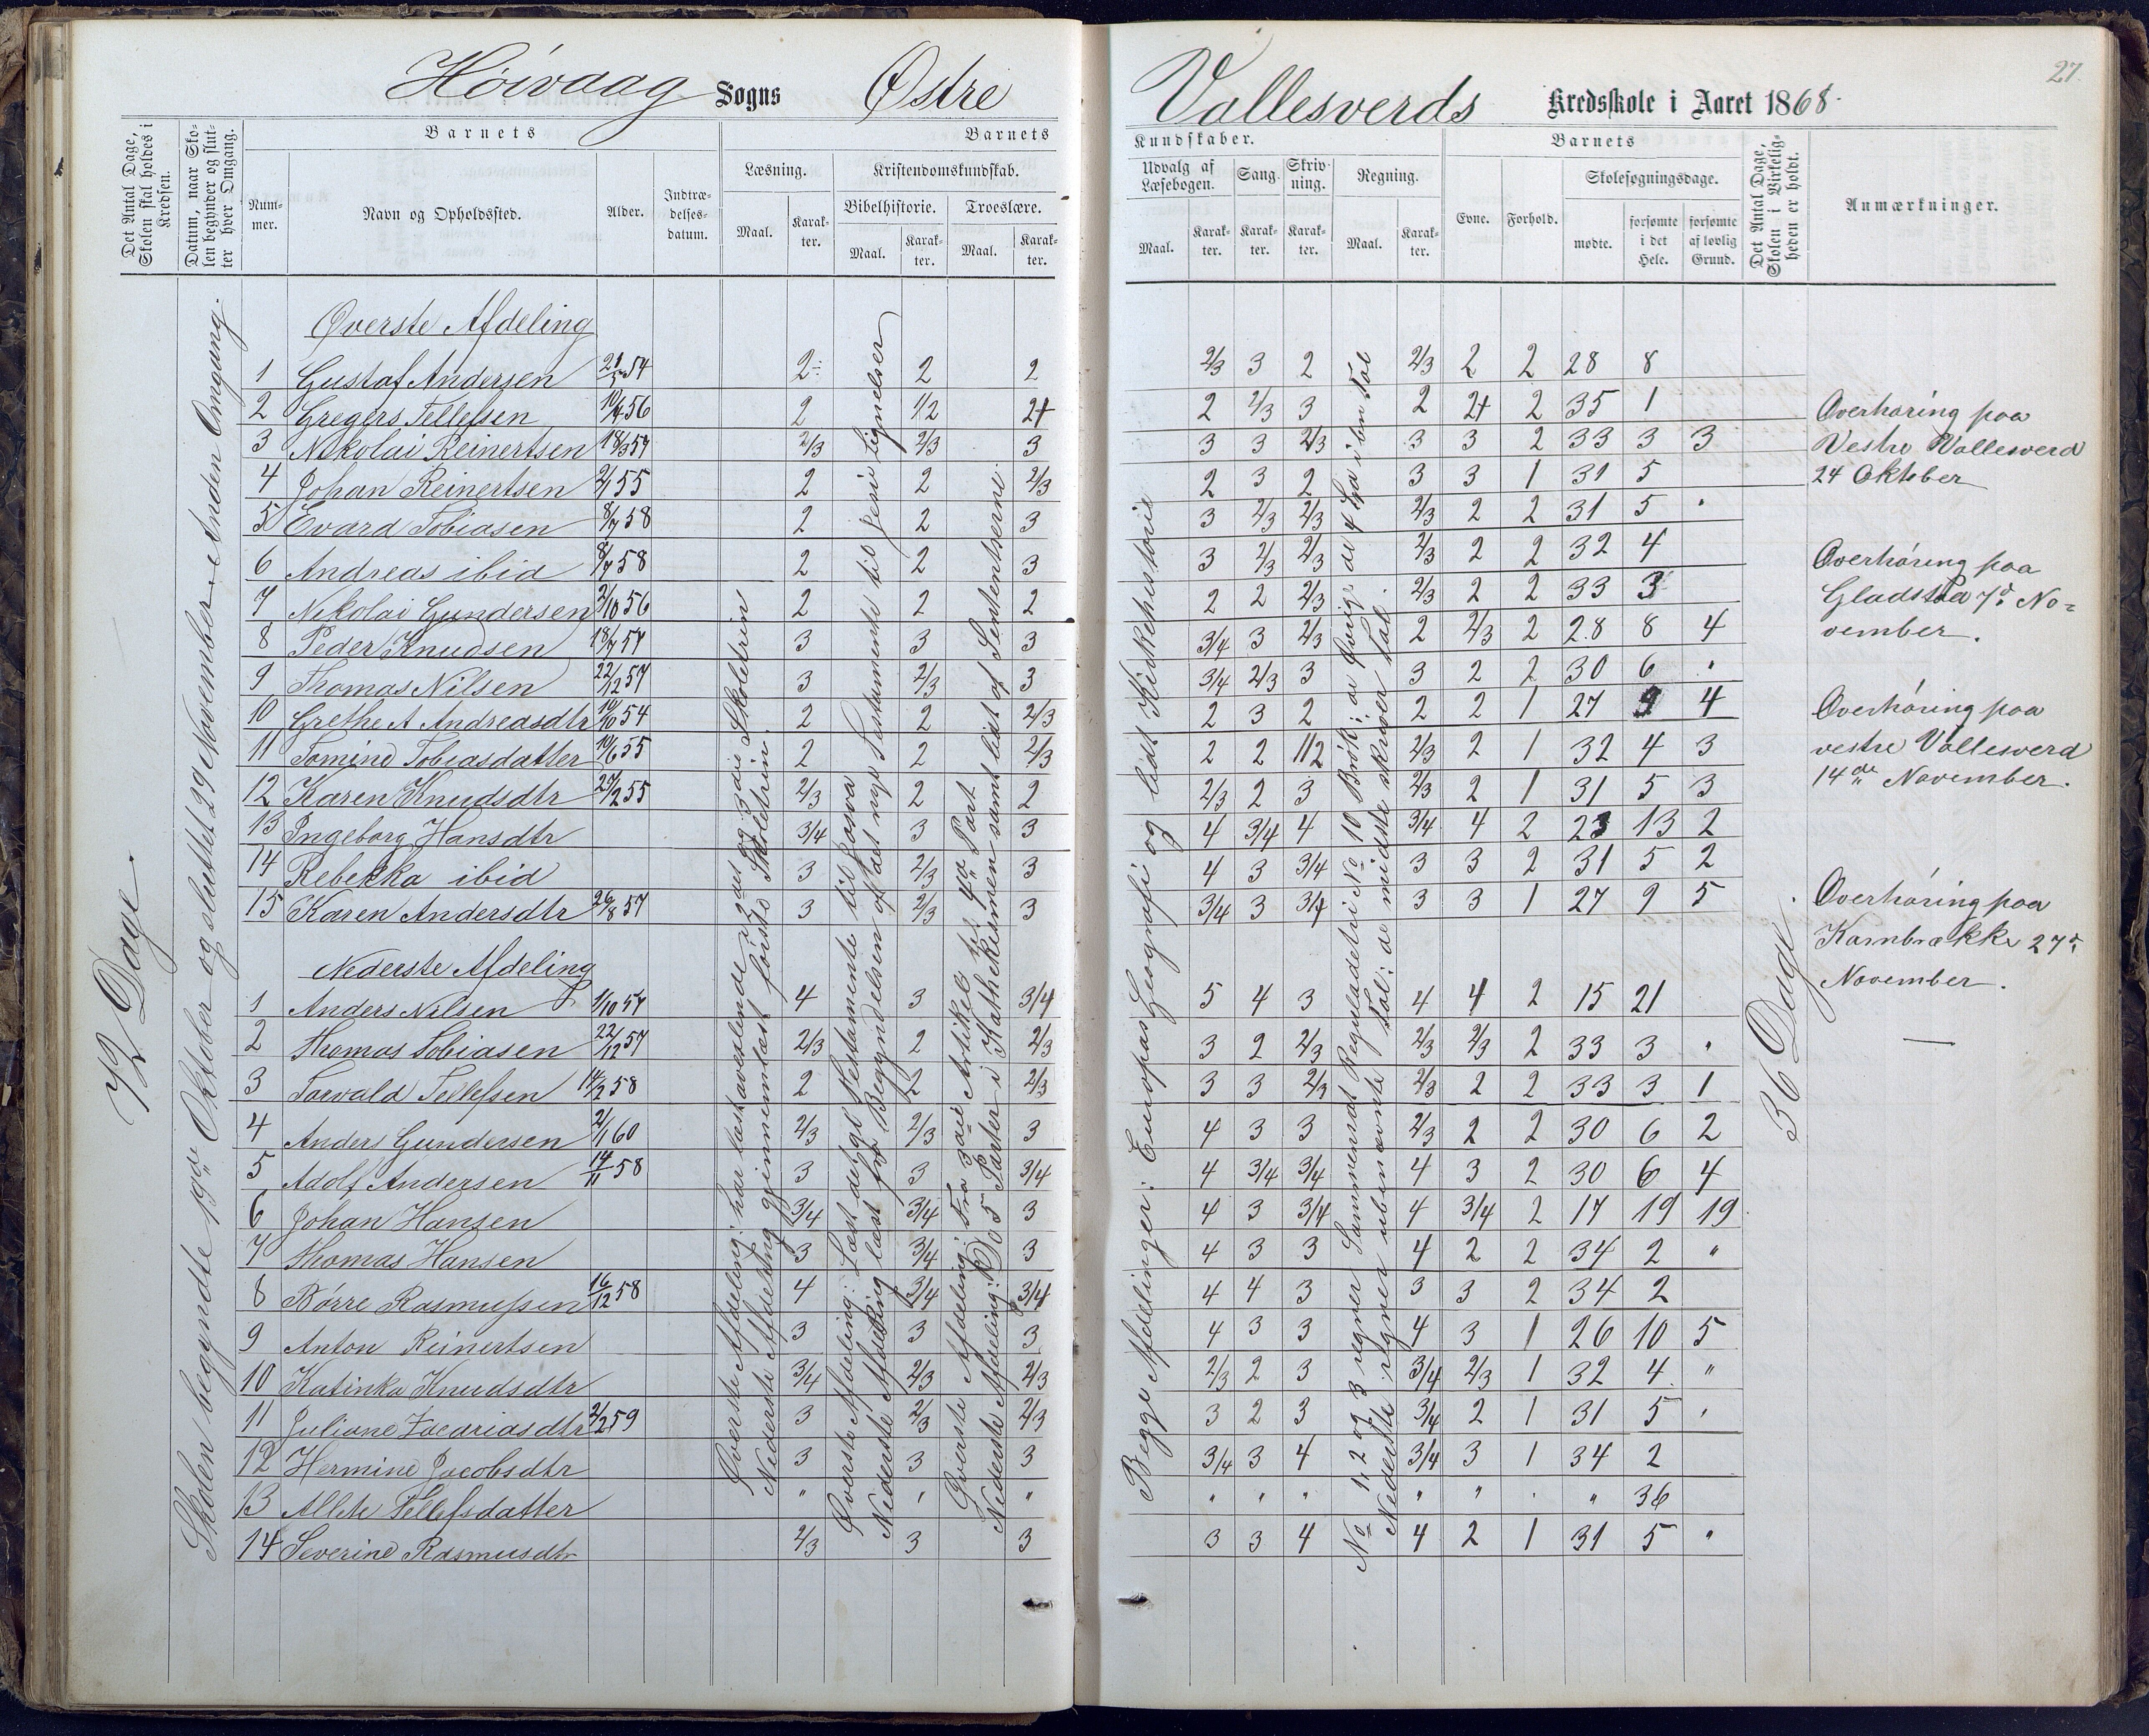 Høivaag Sogns Østre Vallesverds Kredsskole i Aaret 1868.
27.
Det Antal Dage, Skolen skal holdes i Kredsen.
Datum, naar Skolen begynder og slutter hver Omgang.
Barnets
Nummer.
Navn og Opholdssted.
Alder.
Indtrædelsesdatum.
Barnets
Læsning.
Maal.
Karakter.
Kristendomskundskab.
Bibelhistorie.
Maal.
Karakter.
Troeslære.
Maal.
Karakter.
Kundskaber.
Udvalg af Læsebogen.
Maal.
Karakter.
Sang.
Karakter.
Skrivning.
Karakter.
Regning.
Maal.
Karakter.
Barnets
Evne.
Forhold.
Skolesøgningsdage.
mødte.
forsømte i det Hele.
forsømte af lovlig Grund.
Det Antal Dage, Skolen i Virkeligheden er holdt.
Anmærkninger.
72 Dage.
Skolen begyndte 19de Oktober og sluttet 29 November - Anden Omgang.
Øverste Afdeling
1 Gustaf Andersen 21/5 54 2÷ 2 2 2/3 3 2 2/3 2 2 28 8
2 Gregers Tellefsen 10/4 56 2 1/2 2+ 2 2/3 3 2 2+ 2 35 1
3 Nikolai Reinertsen 18/3 57 2/3 2/3 3 3 3 2/3 3 3 2 33 3 3
4 Johan Reinertsen 2/1 55 2 2 2/3 2 3 2 3 3 1 31 5
5 Evard Tobiasen 8/7 58 2 2 3 3 2/3 2/3 2/3 2 2 31 5 "
6 Andreas ibid 8/7 58 2 2 3 3 2/3 2/3 2/3 2 2 32 4
7 Nikolai Gundersen 2/10 56 2 2 2 2 2 2/3 2/3 2 2 33 3
8 Peder Knudsen 18/7 57 3 3 3 3/4 3 2/3 2 2/3 2 28 8 4
9 Thomas Nilsen 22/12 57 3 2/3 3 3/4 2/3 3 3 2 2 30 6 "
10 Grethe A Andreasdtr 10/10 54 2 2 2/3 2 3 2 2 2 1 27 9 4
11 Tomine Tobiasdatter 10/6 55 2 2 2/3 2 2 1/2 2/3 2 1 32 4 3
12 Karen Knudsdtr 27/2 55 2/3 2 2 2/3 2 3 2/3 2 1 31 5 3
13 Ingeborg Hansdtr 3/4 3 3 4 3/4 4 3/4 4 2 23 13 2
14 Rebekka ibid 3 2/3 3 4 3 3/4 3 3 2 31 5 2
15 Karen Andersdtr 26/8 57 3 2/3 3 3/4 3 3/4 3 3 1 27 9 5
Nederste Afdeling
1 Anders Nilsen 1/10 57 4 3 3/4 5 4 3 4 4 2 15 21
2 Thomas Tobiasen 22/12 57 2/3 2 2/3 3 2 2/3 2/3 2/3 2 33 3 "
3 Torvald Tellefsen 14/2 58 2 2 2/3 3 3 2/3 2/3 2 2 33 3 1
4 Anders Gundersen 2/1 60 2/3 2/3 3 4 3 3 2/3 2 2 30 6 2
5 Adolf Andersen 14/11 58 3 3 3/4 4 3/4 3/4 4 3 2 30 6 4
6 Johan Hansen 3/4 3/4 3 4 3 3/4 4 3/4 2 17 19 19
7 Thomas Hansen 3 3/4 3 4 3 3 4 2 2 34 2 "
8 Børre Rasmussen 16/12 58 4 3/4 3/4 4 4 3 3 3 2 34 2
9 Anton Reinertsen 3 3 3 4 3 3 4 3 1 26 10 5
10 Katinka Knudsdtr 3/4 2/3 2/3 2/3 2 3 3/4 2/3 1 32 4 "
11 Juliane Zacariasdtr 2/2 59 3 2/3 2/3 3 2 3 3/4 2 1 31 5 "
12 Hermine Jacobsdtr 3 3 3 3/4 3 4 3/4 3 1 34 2
13 Allete Tellefsdatter " " " " " " " " " " 36
14 Severine Rasmusdtr 2/3 3 3 3 3 4 4 2 1 31 5 "
Øverste Afdeling: har læst avexlende i 2det og 3die Skoletrin
Nederste Afdeling gjennemlæst første Skoletrin.
Øverste Afdeling: Læst det gl Testamente til Josva
Nederste Afdeling læst fra Begyndelsen af det nye Testamente til Jesu Lignelser
Øverste Afdeling: Fra 3die Artikel til 4de Part
Nederste Afdeling: Do 5 Parter i Kathekismen samt lidt af Sententserne.
Begge Afdelinger: Europas Geografi og lidt Kirkehistorie
No 1, 2 og 3 regner Sammensat Reguladetri No 10 Brøk; de øvrige de 4 Spa i bn Tal
Nederste regner ubenævnte Tal: de mindste skriver Tal.
36 Dage.
Overhøring paa
Vestre Vallesverd
24 Oktober
Overhøring paa
Gladstad 7d. No=
vember.
Overhøring paa
vestre Vallesverd
14de November.
Overhøring paa
Kambrække 27d.
November.